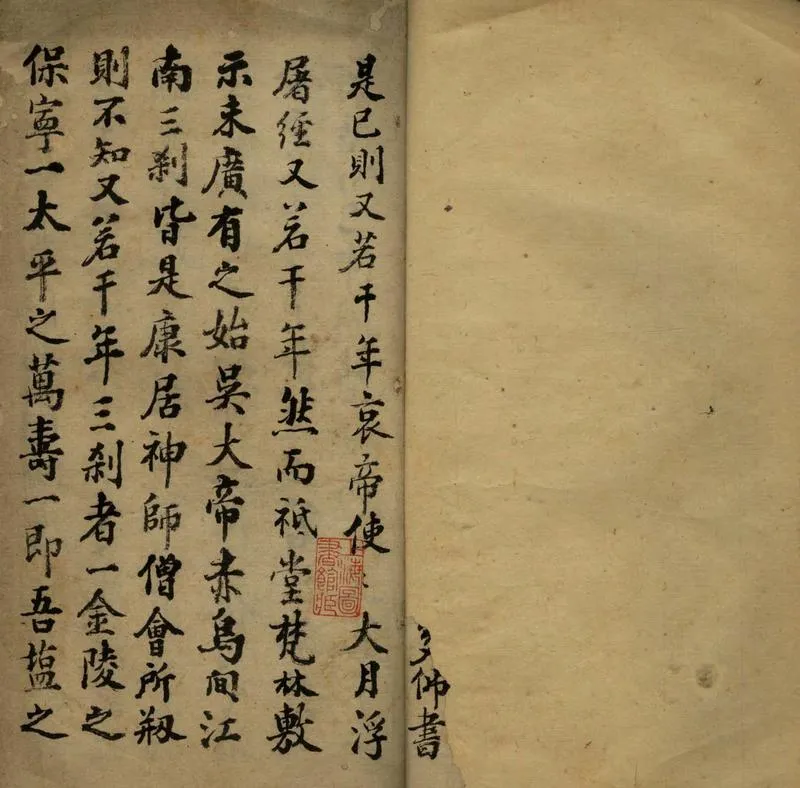 佛書
是已則又若干年哀帝使〻大月浮
屠經又若干年然而祇堂梵林敷
示未廣有之始吳大帝赤烏間江
南三剎皆是康居神師僧會所剏
則不知又若干年三剎者一金陵之
保寧一太平之萬壽一即吾塩之
上海圖
書館藏